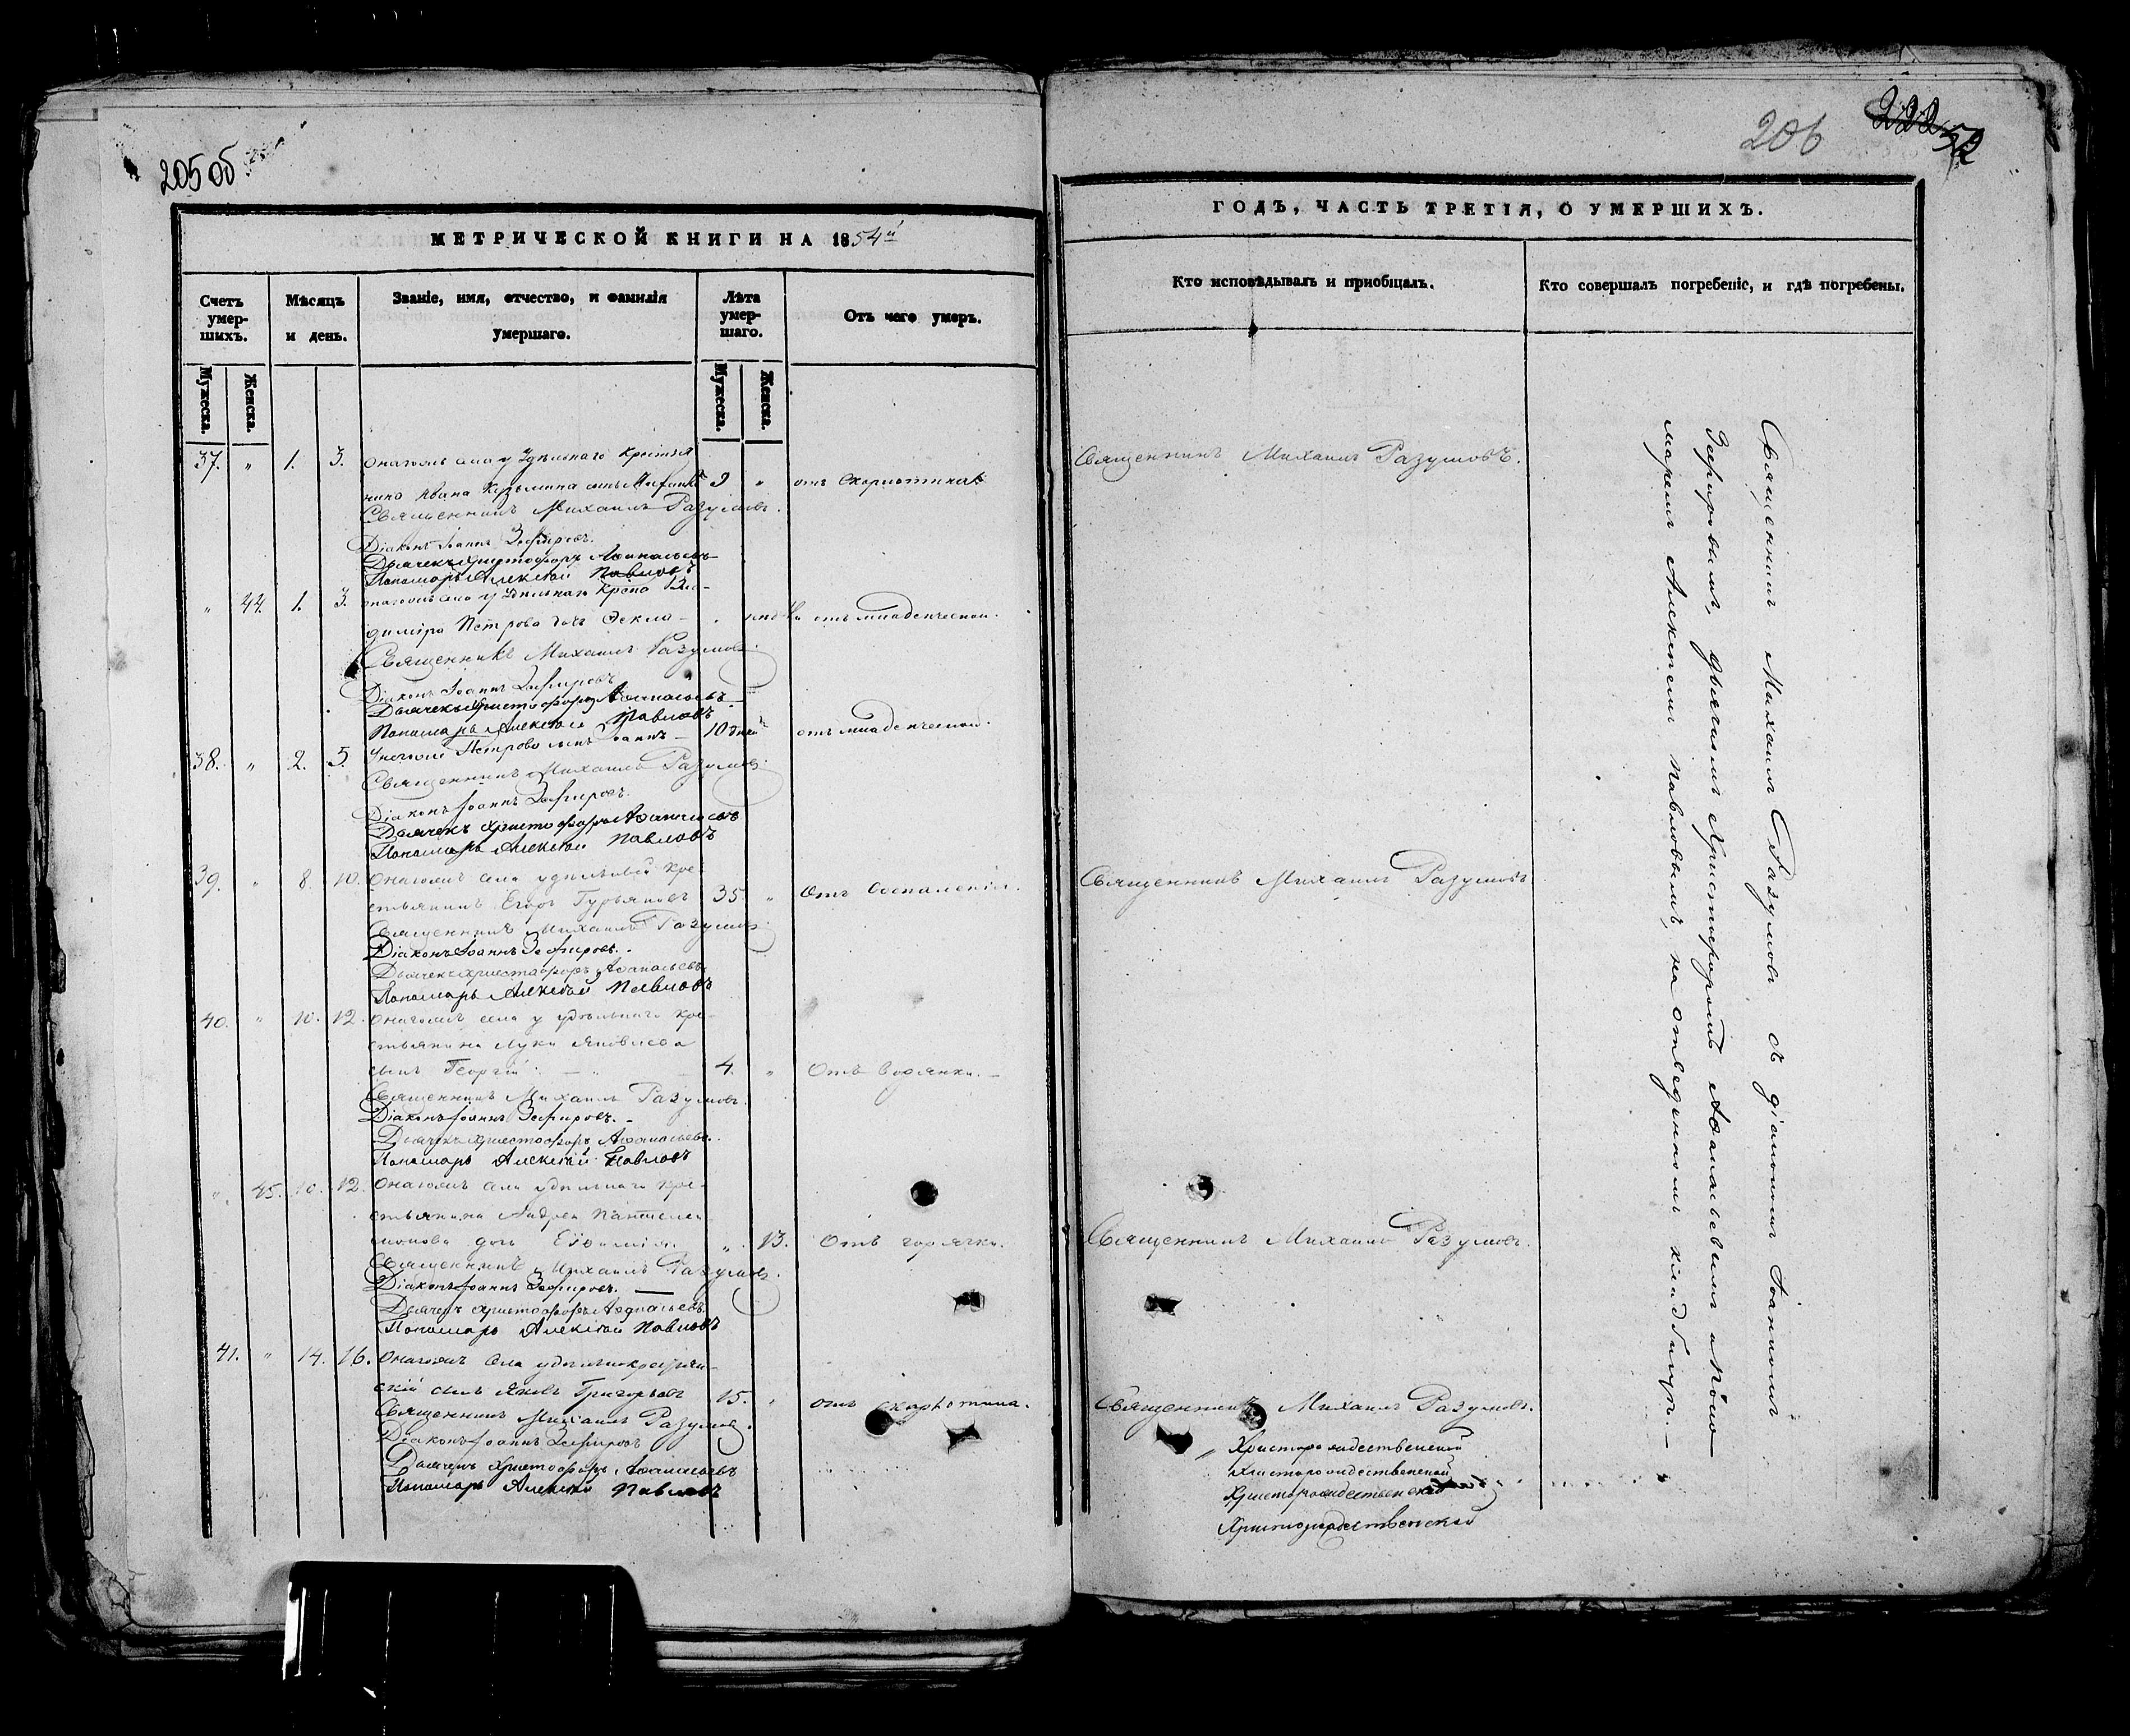 205 об
МЕТРИЧЕСКОЙ КНИГИ НА 1854й
Счетъ умер-шихъ.
Мѣсяцъ и день.
Званіе, имя, отчество, и фамилія умершаго.
Лѣта умер-шаго.
Отъ чего умеръ.
Мужеска.
Женска.
Мужеска.
Женска.
37. " 1. 3. Онагожъ села у Удѣльнаго Крестья
нина Ивана Кузьмина сынъ 9 " отъ Скарлатины
Священникъ Михаилъ Разумовъ.
Діаконъ Іоаннъ Зефировъ.
Дьячекъ Христофоръ Аѳанасьевъ
Пономарь Алексѣй Павловъ
" 44. 1. 3. онагожъ села у Удѣльнаго Крест Вла-
диміра Петрова дочь Ѳекла - " отъ младенческой.
Священникъ Михаилъ Разумовъ.
Діаконъ Іоаннъ Зефировъ
Дьячекъ Христофоръ Аѳанасьевъ
Пономарь Алексѣй Павловъ
38. " 2. 5. Петрова сынъ Іоаннъ - 10 дней " отъ младенческой.
Священникъ Михаилъ Разумовъ.
Діаконъ Іоаннъ Зефировъ.
Дьячекъ Христофоръ Аѳанасьевъ
Пономарь Алексѣй Павловъ
39. " 8. 10. Онагожъ села удѣльный кре-
стьянинъ Егоръ Гурьяновъ 35. " Отъ Воспаленія.
Священникъ Михаилъ Разумовъ.
Діаконъ Іоаннъ Зефировъ. -
Дьячекъ Христофоръ Аѳанасьевъ
Пономарь Алексѣй Павловъ
40. " 10. 12. Онагожъ села у удѣльнаго кре-
стьянина Луки Яковлева
сынъ Георгій. - 4. " Отъ водянки. -
Священникъ Михаилъ Разумовъ.
Діаконъ Іоаннъ Зефировъ. -
Дьячекъ Христофоръ Аѳанасьевъ.
Пономарь Алексѣй Павловъ
" 45. 10. 12. Онагожъ села удѣльнаго кре-
стьянина Андрея Пантелеи-
монова дочь Евѳимія. " 13. Отъ горячки.
Священникъ Михаилъ Разумовъ.
Діаконъ Іоаннъ Зефировъ. -
Дьячекъ Христофоръ Аѳанасьевъ
Пономарь Алексѣй Павловъ
41. " 14. 16. Онагожъ села
скій сынъ Яковъ Григорьевъ 15. " отъ скарлатины.
Священникъ Михаилъ Разумовъ.
Діаконъ Іоаннъ Зефировъ
Дьячекъ Христофоръ Аѳанасьевъ
Пономарь Алексѣй Павловъ
206
222
52
ГОДЪ, ЧАСТЬ ТРЕТІЯ, О УМЕРШИХЪ.
Кто исповѣдывалъ и пріобщалъ.
Кто совершалъ погребеніе, и гдѣ погребены.
Священникъ Михаилъ Разумовъ.
Священникъ Михаилъ Разумовъ
Священникъ Михаилъ Разумовъ.
Священникъ Михаилъ Разумовъ.
Христорождественской
Христорождественской
Христорождественской
Христорождественской
Священникъ Михаилъ Разумовъ съ діакономъ Іоанномъ
Зефировымъ, дьячкомъ Христофоромъ Аѳанасьевымъ и Поно-
маремъ Алексѣемъ Павловымъ, на отведенномъ кладбищѣ. -